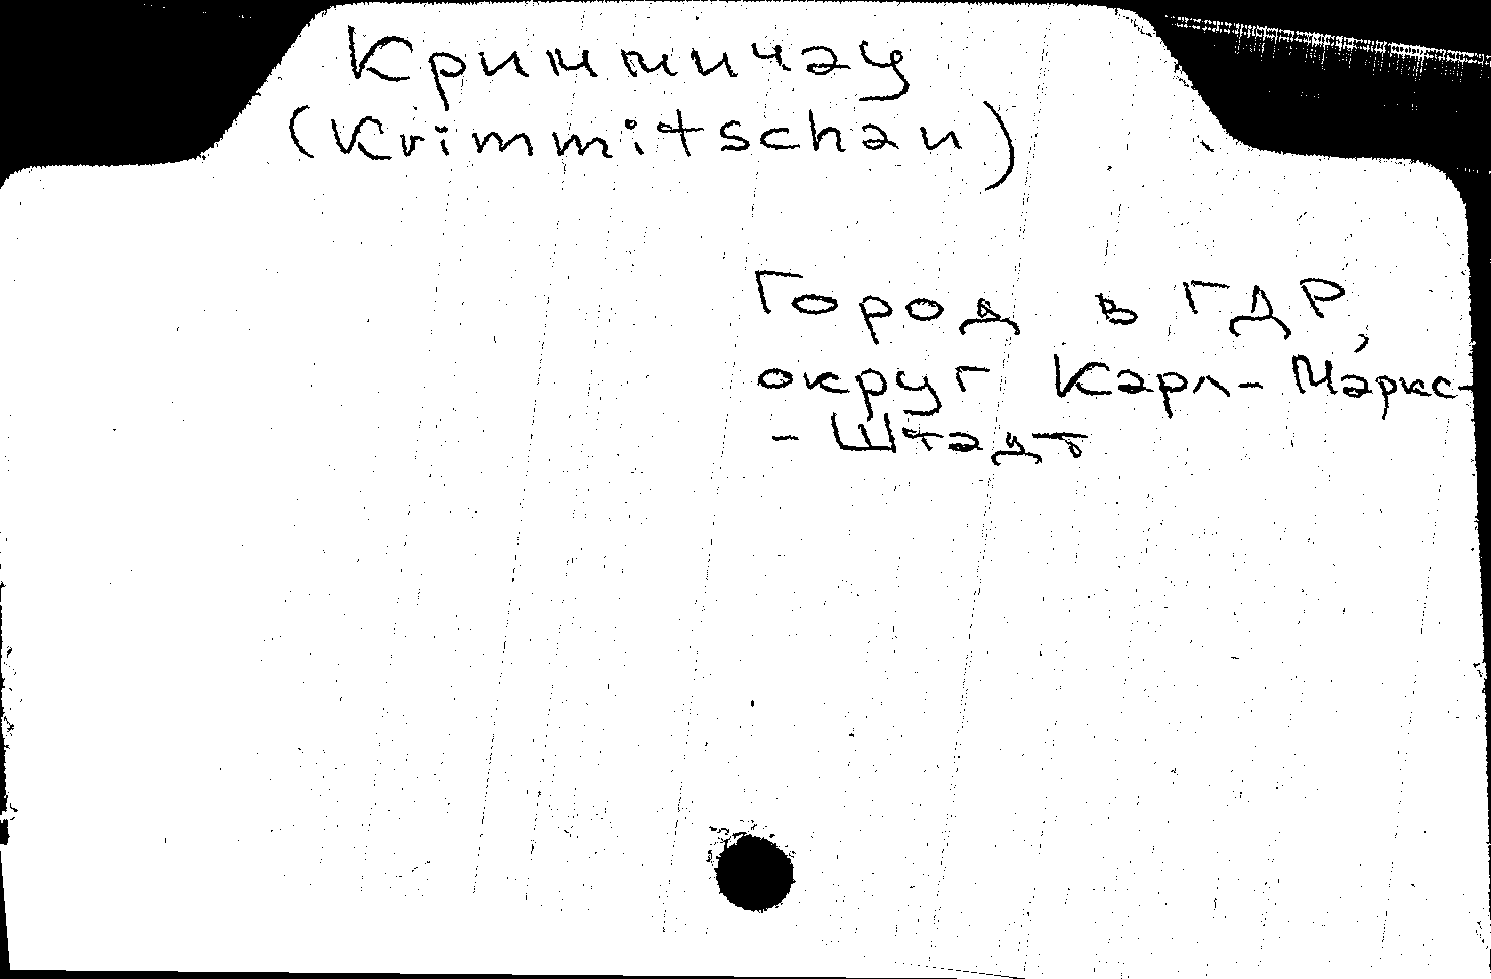 Криммичау
(Krimmitschau)
Город в ГДР,
округ Карл-Маркс-
-Штадт